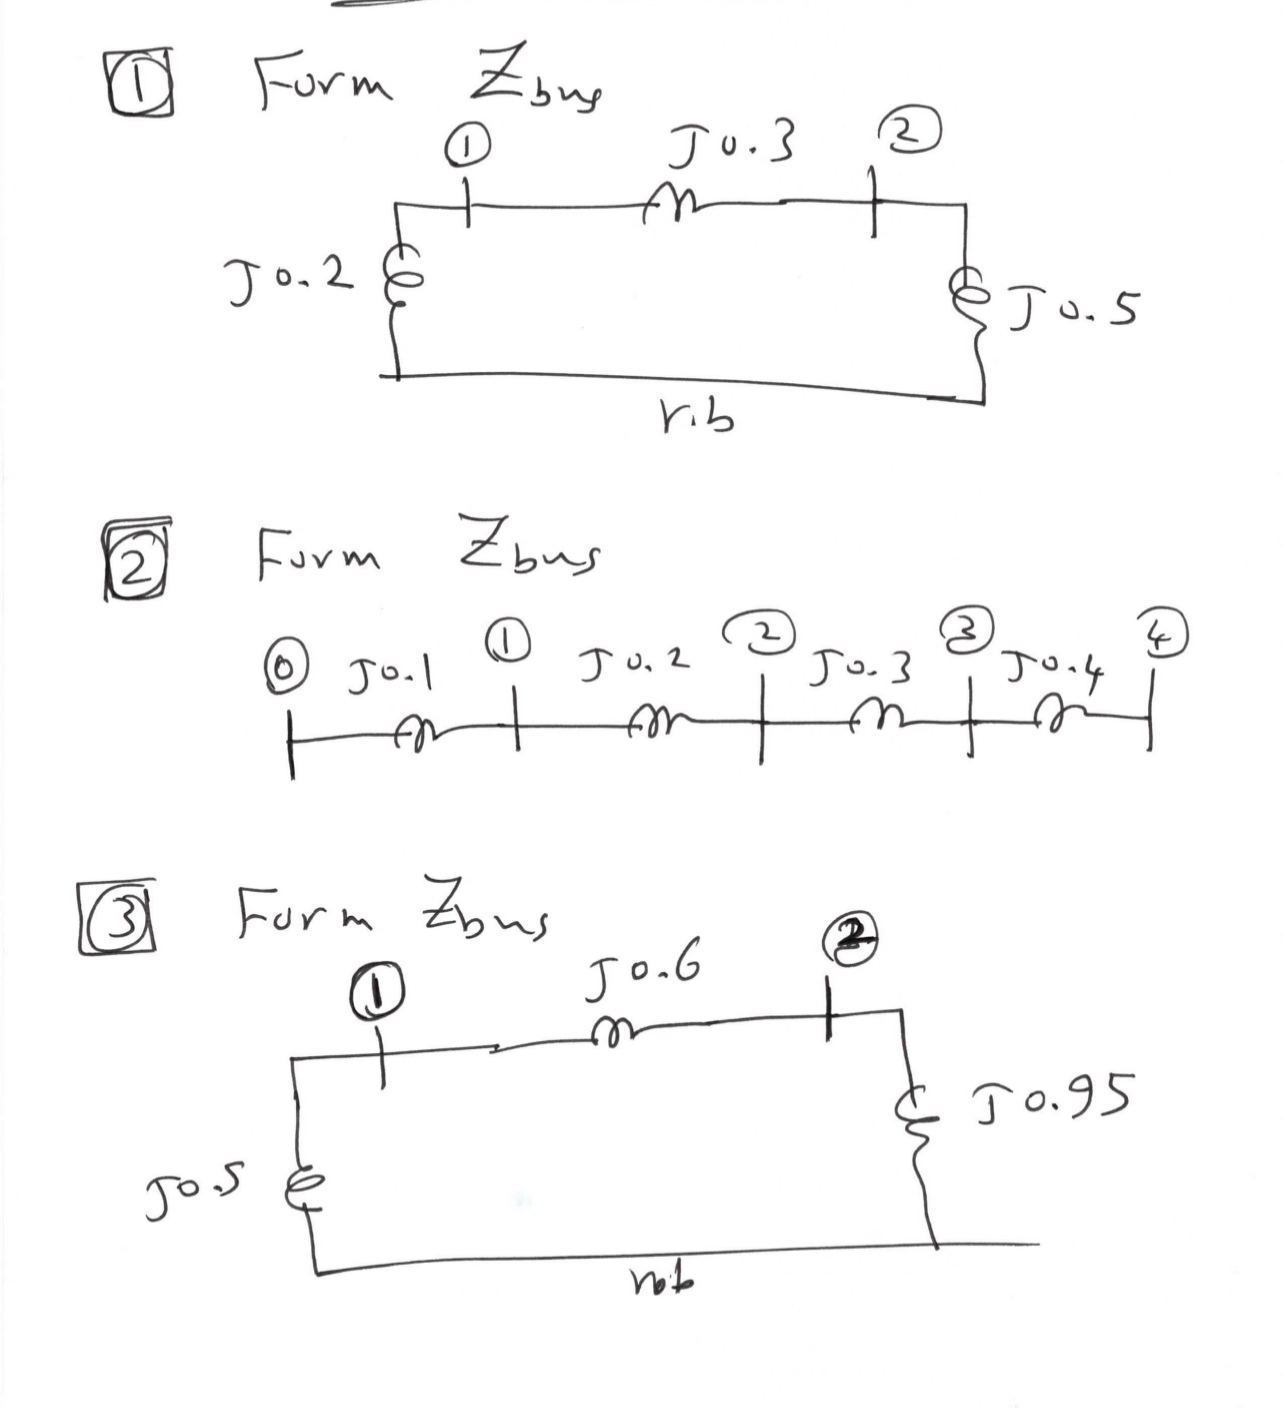 1 Form Zbus
1 J0.3 2
J0.2
J0.5
r.b
2 Form Zbus
0 J0.1 1 J0.2 2 J0.3 3 J0.4 4
3 Form Zbus
1 J0.6 2
J0.95
J0.5